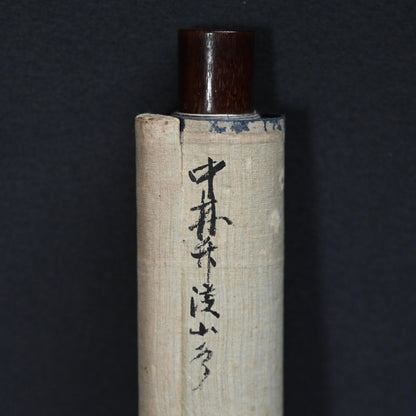 中林竹渓山水